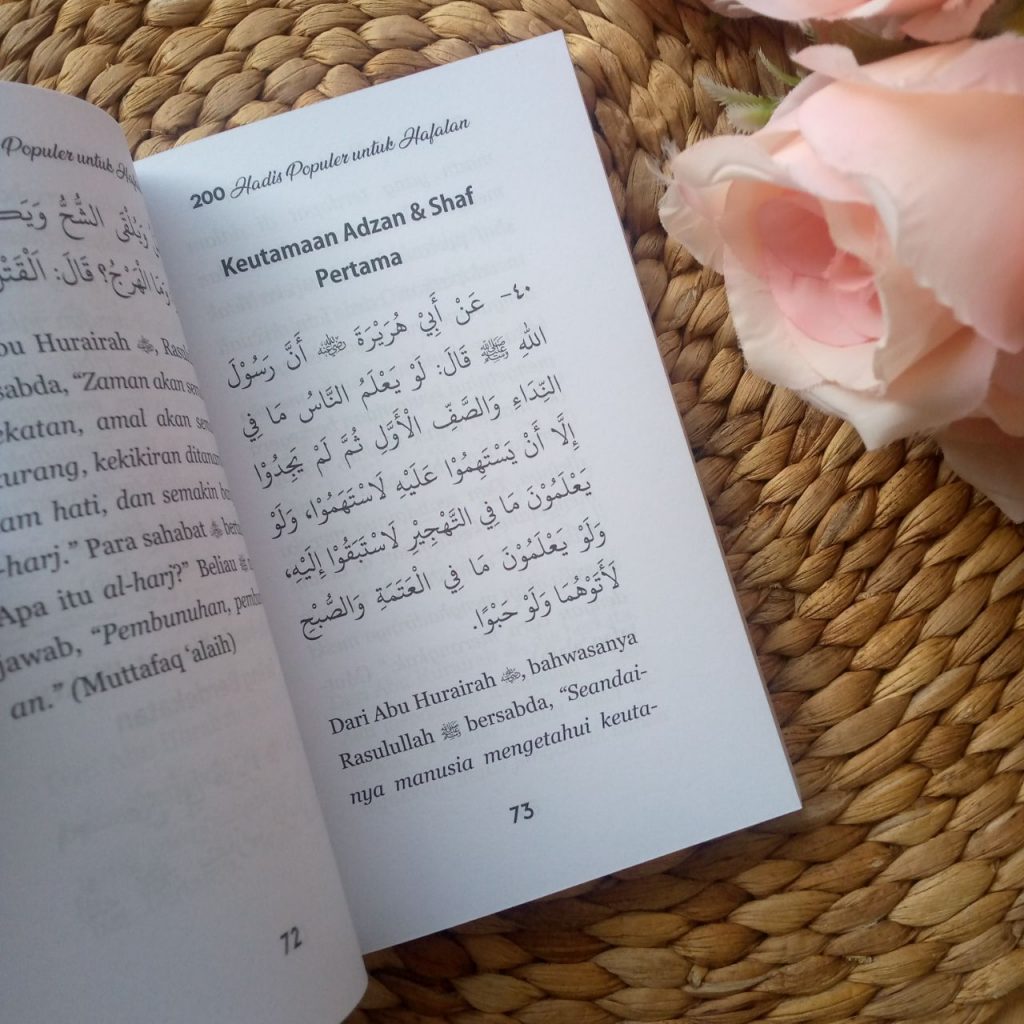 Populer untuk
الشُّحُّ
الْهَرْجُ؟ قَالَ: الْقَتْلُ
Hurairah
sabda, “Zaman akan
amal akan
kekikiran
hati, dan semakin
harj.” Para sahabat ﷺ
Apa itu al-harj?” Beliau ﷺ
jawab, “Pembunuhan,
an.” (Muttafaq ‘alaih)
72
200 Hadis Populer untuk Hafalan
Keutamaan Adzan & Shaf
Pertama
٤٠- عَنْ أَبِيْ هُرَيْرَةَ ﵁ أَنَّ رَسُوْلَ
اللهِ ﷺ قَالَ: لَوْ يَعْلَمُ النَّاسُ مَا فِي
النِّدَاءِ وَالصَّفِّ الْأَوَّلِ ثُمَّ لَمْ يَجِدُوْا
إِلَّا أَنْ يَسْتَهِمُوْا عَلَيْهِ لَاسْتَهَمُوْا، وَلَوْ
يَعْلَمُوْنَ مَا فِي التَّهْجِيْرِ لَاسْتَبَقُوْا إِلَيْهِ،
وَلَوْ يَعْلَمُوْنَ مَا فِي الْعَتَمَةِ وَالصُّبْحِ
لَأَتَوْهُمَا وَلَوْ حَبْوًا.
Dari Abu Hurairah ﵁, bahwasanya
Rasulullah ﷺ bersabda, “Seandai-
nya manusia mengetahui keuta-
73